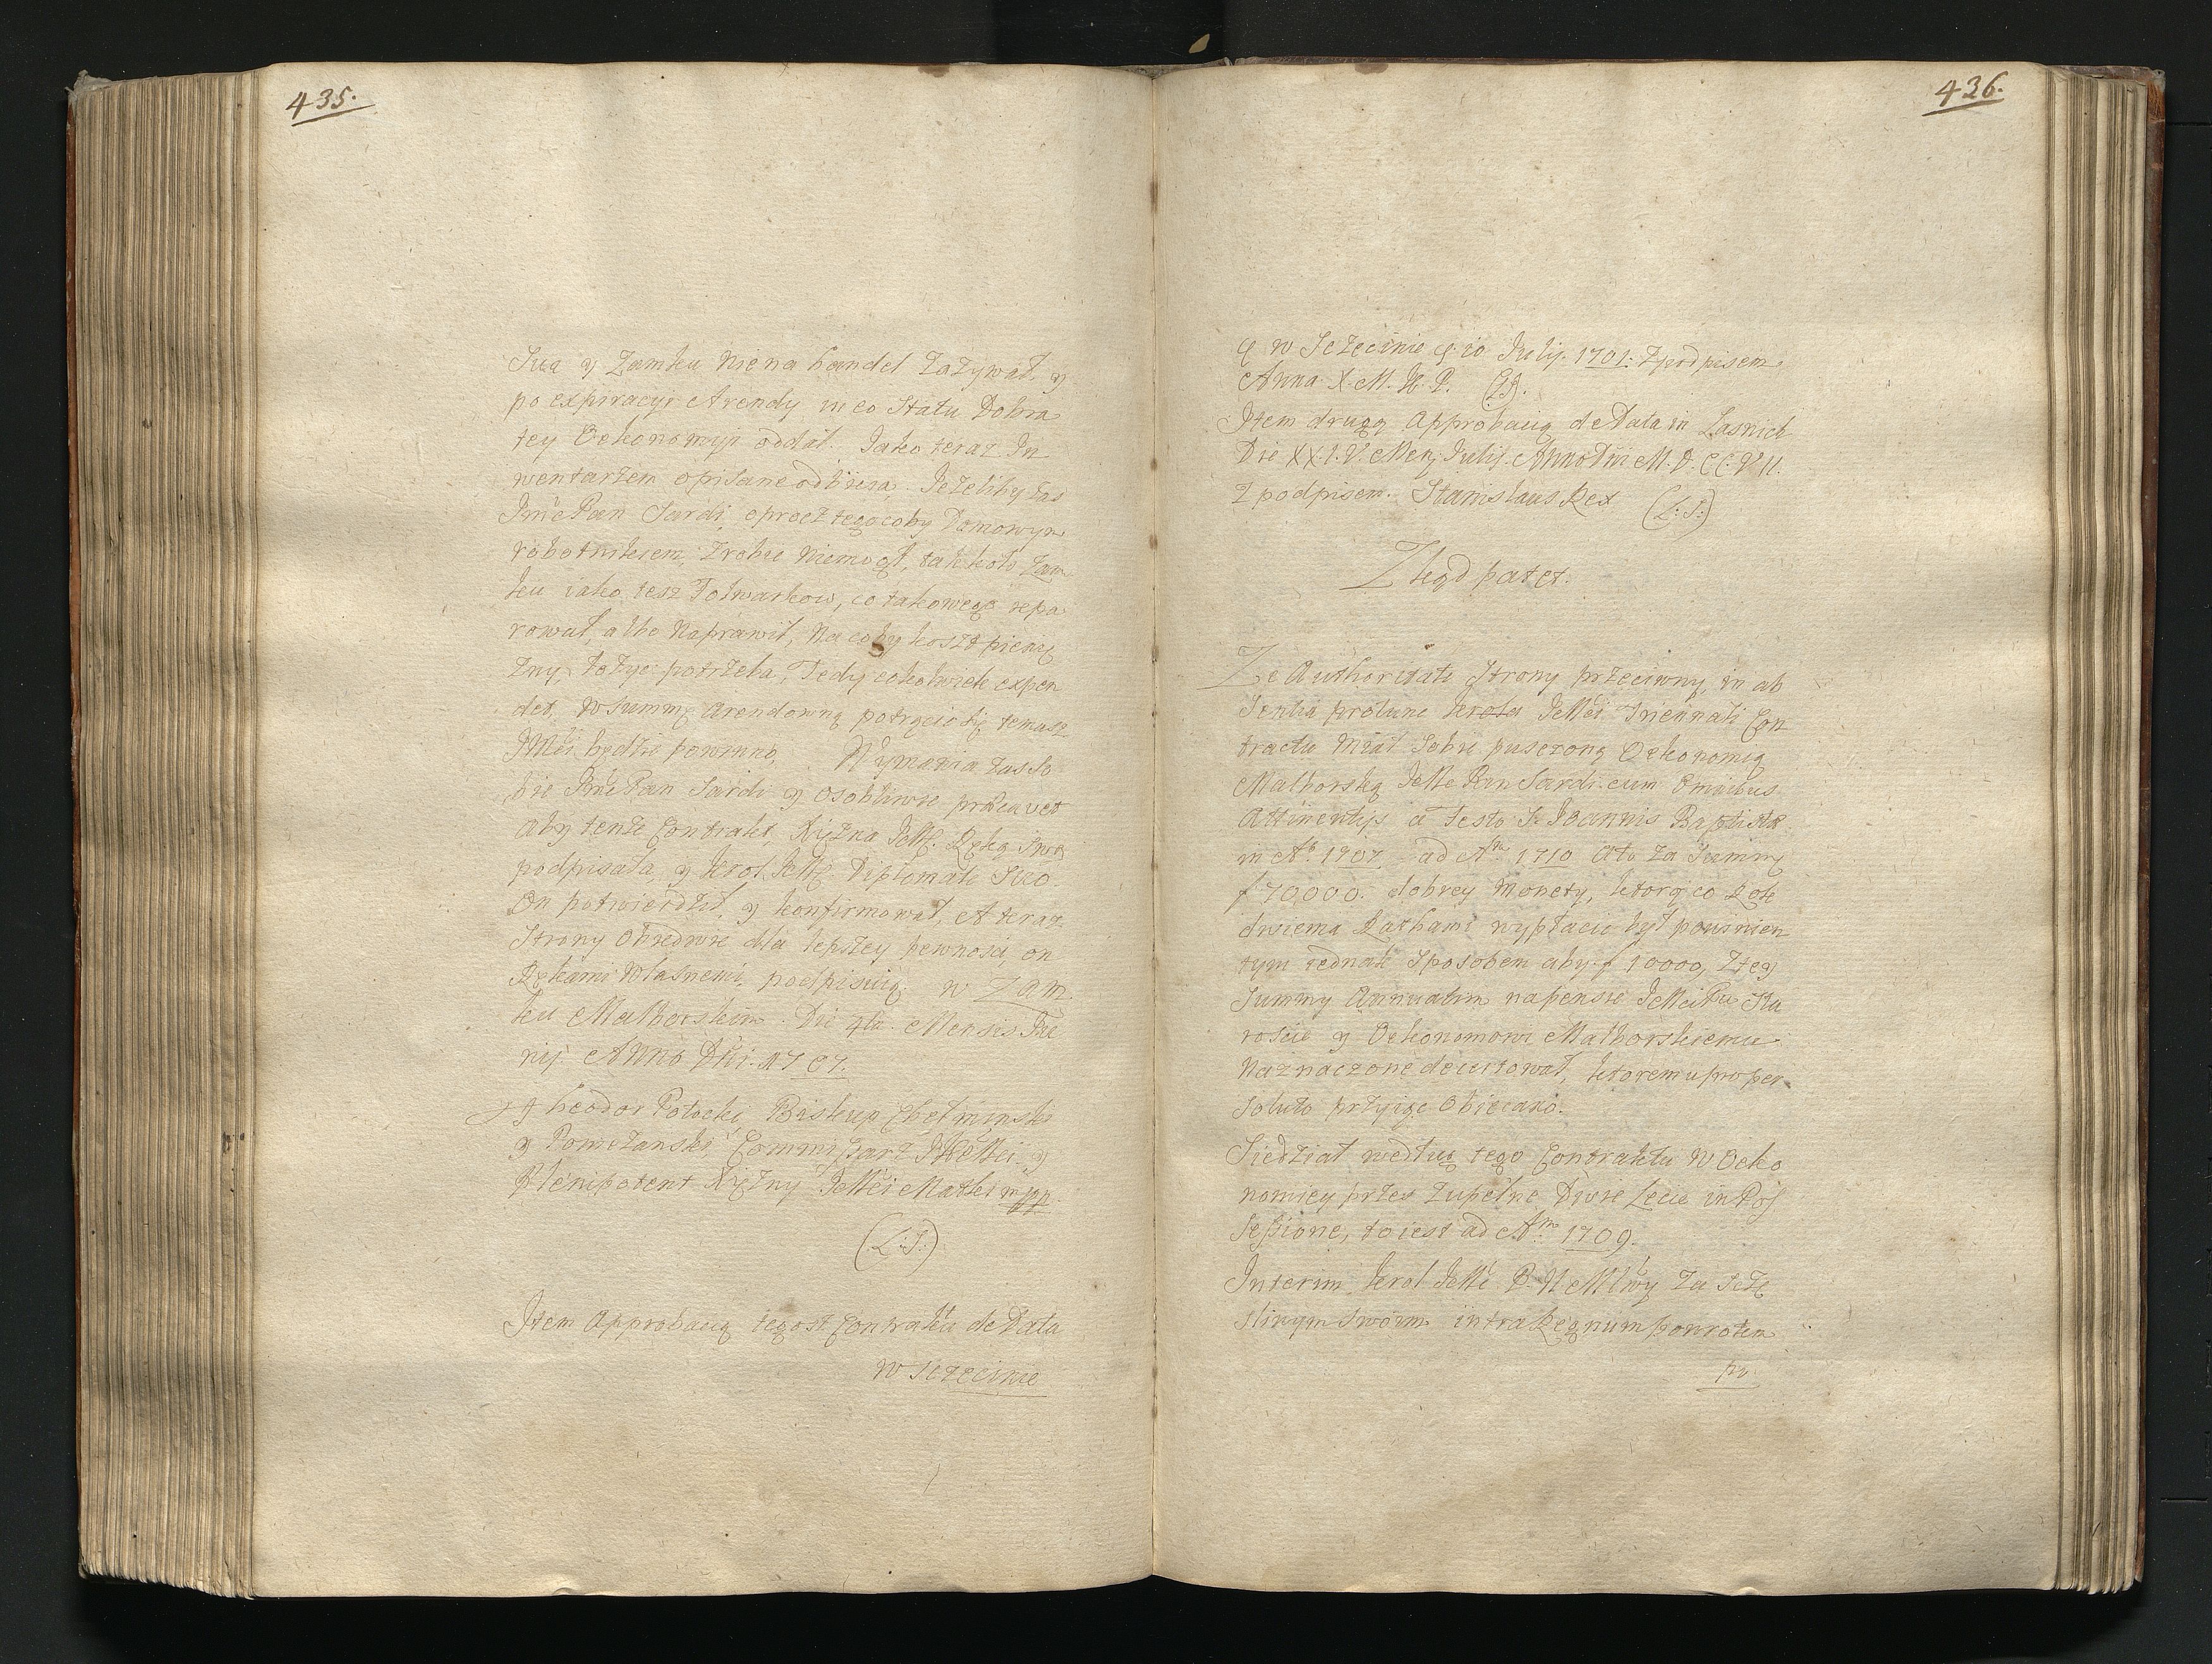 435.
Swą y Zamku nie na handel Zażywał, y
po expiracyi Arendy in eo Statu Dobra
tey Oekonomiji oddał. Jako teraz In
wentarzem opisane odbiera. Jeżeliby zas
Jmć Pan Sardi, oprocz tego coby Domowym
robotnikiem, Zrobić niemogł, tak koło Zam
ku iako tesz Folwarkow, co takowego repa
rował, albo Naprawił, Na coby koszt pienię
zny, łożyć potrzeba, Tedy cokolwiek expen
det, w Summę arendowną potrącić się temusz
JMci będzie powinno. Wymawia zas so
bie Jmć Pan Sardi y osobliwie praecavet
Aby tenże Contrakt, Xiężna JeMć. Ręką swą
podpisała, y krol JeMć Diplomate Suo.
On potwierdził, y konfirmował, A teraz
Strony Obiedwie dla lepszey pewnosci, on
Rękami Własnemi, podpisuią. w Zam
ku Malborskim. Die 4ta. Mensis Ju
nij. Anno Dñi. 1707.
Theodor Potocki, Biskup Chełminski
y Pomezanski, Commissarz JKMci. y
Plenipotent Xiężny JeMci Matki mpp.
(L:S:)
Item Approbacią tegosz Contraktu de Data
w Szczecinie
436.
w Szczecinie 10 July. 1701. Z podpisem.
Anna X. M. K. P.
Item drugą Approbacią de Data in Lasnich
Die XXI.V. Mens Julij. Anno Dñi M.D.CC.VII.
Z podpisem. Stanislaus Rex (L:S:)
Zkąd patet.
Ze Authoritate Strony przeciwny, in ab
sentia protunc krola JeMci. Triennali Con
tractu miał Sobie puszczoną Oekonomią
Malborską JeMć Pan Sardi. cum omnibus
Attinentijs a Festo S. Joannis Baptistæ
in Aº 1707 ad Aᵐ 1710 Ato za Summę
f 70,000. dobrey Monety, ktorą co Rok
dwiema Rathami wypłacic był powinien
tym iednak sposobem aby f 10000, z tey
Summy Annuatim na pensie JeMci Pu Sta
roscie y Oekonomowi Malborskiemu
Naznaczone decurtował, ktoremu pro per
soluto przyiąc Obiecano.
Siedział według tego Contraktu w Oeko
nomiey przes zupełne Dwie Lecie in Pos
sessione, to iest ad Aᵐ 1709.
Interim krol JeMć P. N. Mlwy za szczę
sliwym swoim intra Regnum powrotem